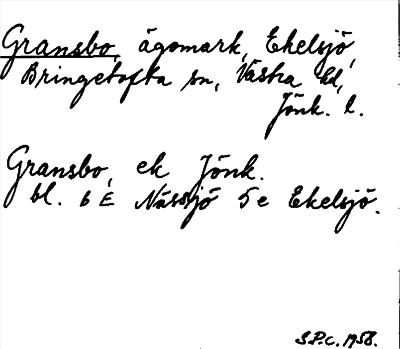 Gransbo, ägomark, Ekelsjö,
Bringetofta sn, Västra hd,
Jönk. l.
Gransbo, ek Jönk.
bl. 6 E Nässjö 5 e Ekelsjö.
S.P.C. 1958.